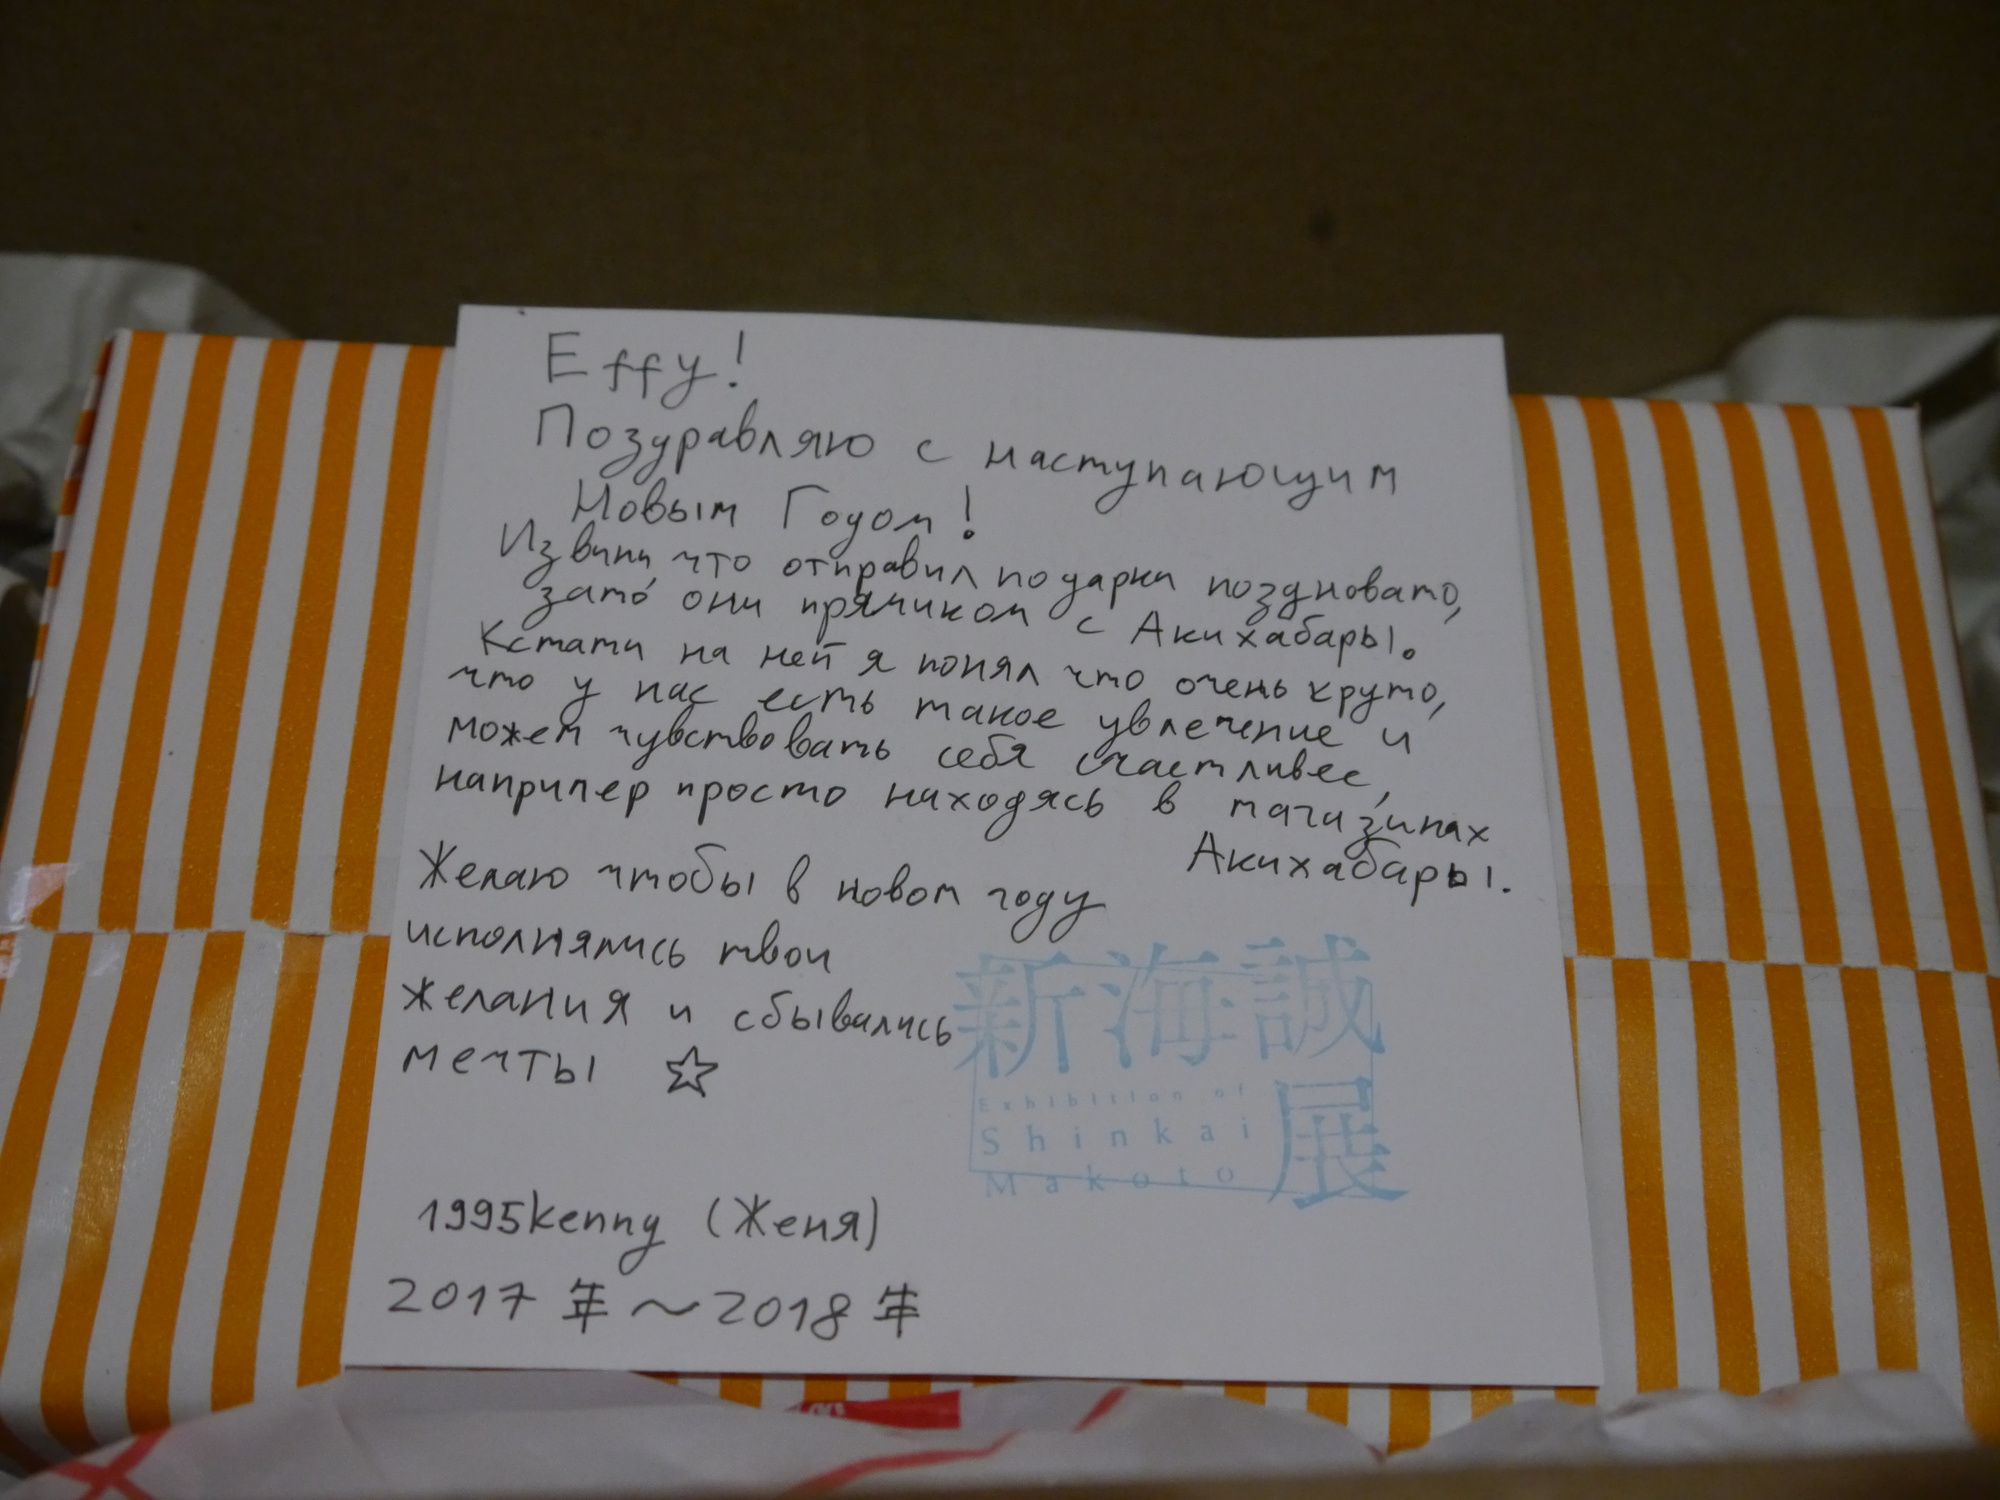 Effy!
Поздравляю с наступающим
Новым Годом!
Извини что отправил подарки поздновато,
зато́ они прямиком с Акихабары.
Кстати на ней я понял что очень круто,
что у нас есть такое увлечение и
можем чувствовать себя счастливее,
например просто находясь в магазинах
Акихабары.
Желаю чтобы в новом году
исполнялись твои
желания и сбывались
мечты ☆
新海誠
展
Exhibition of
Shinkai
Makoto
1995kenny (Женя)
2017年～2018年